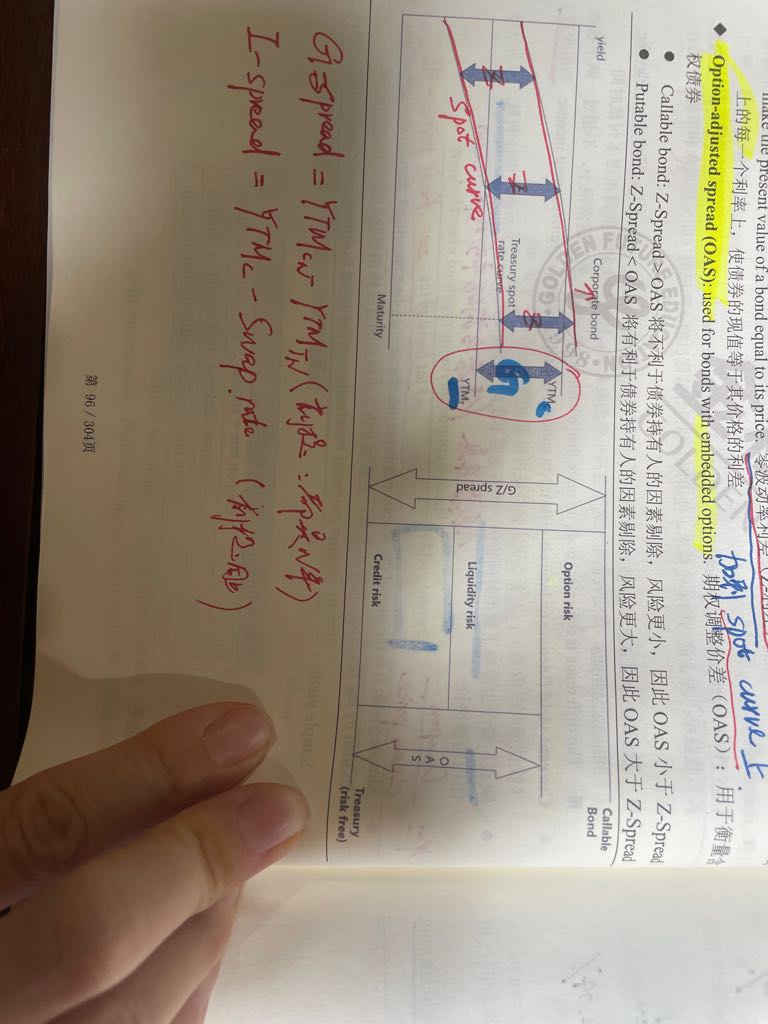 make the present value of a bond equal to its price. 零波动率利差
上的每一个利率上，使债券的现值等于其价格的利差
加到 spot curve 上.
◆ Option-adjusted spread (OAS): used for bonds with embedded options. 期权调整价差（OAS）：用于衡量含
权债券
● Callable bond: Z-Spread > OAS 将不利于债券持有人的因素剔除，风险更小，因此 OAS 小于 Z-Spread
● Putable bond: Z-Spread < OAS 将有利于债券持有人的因素剔除，风险更大，因此 OAS 大于 Z-Spread
yield
Corporate bond
Z
Z
Z
Treasury spot
rate curve
spot curve
Maturity
YTMc
G
YTMT
G/Z spread
Option risk
Liquidity risk
Credit risk
O
A
S
Callable
Bond
Treasury
(risk free)
GOLDEN
G-spread = YTMCN - YTMTN
I-spread = YTMc - Swap rate
第 96 / 304页